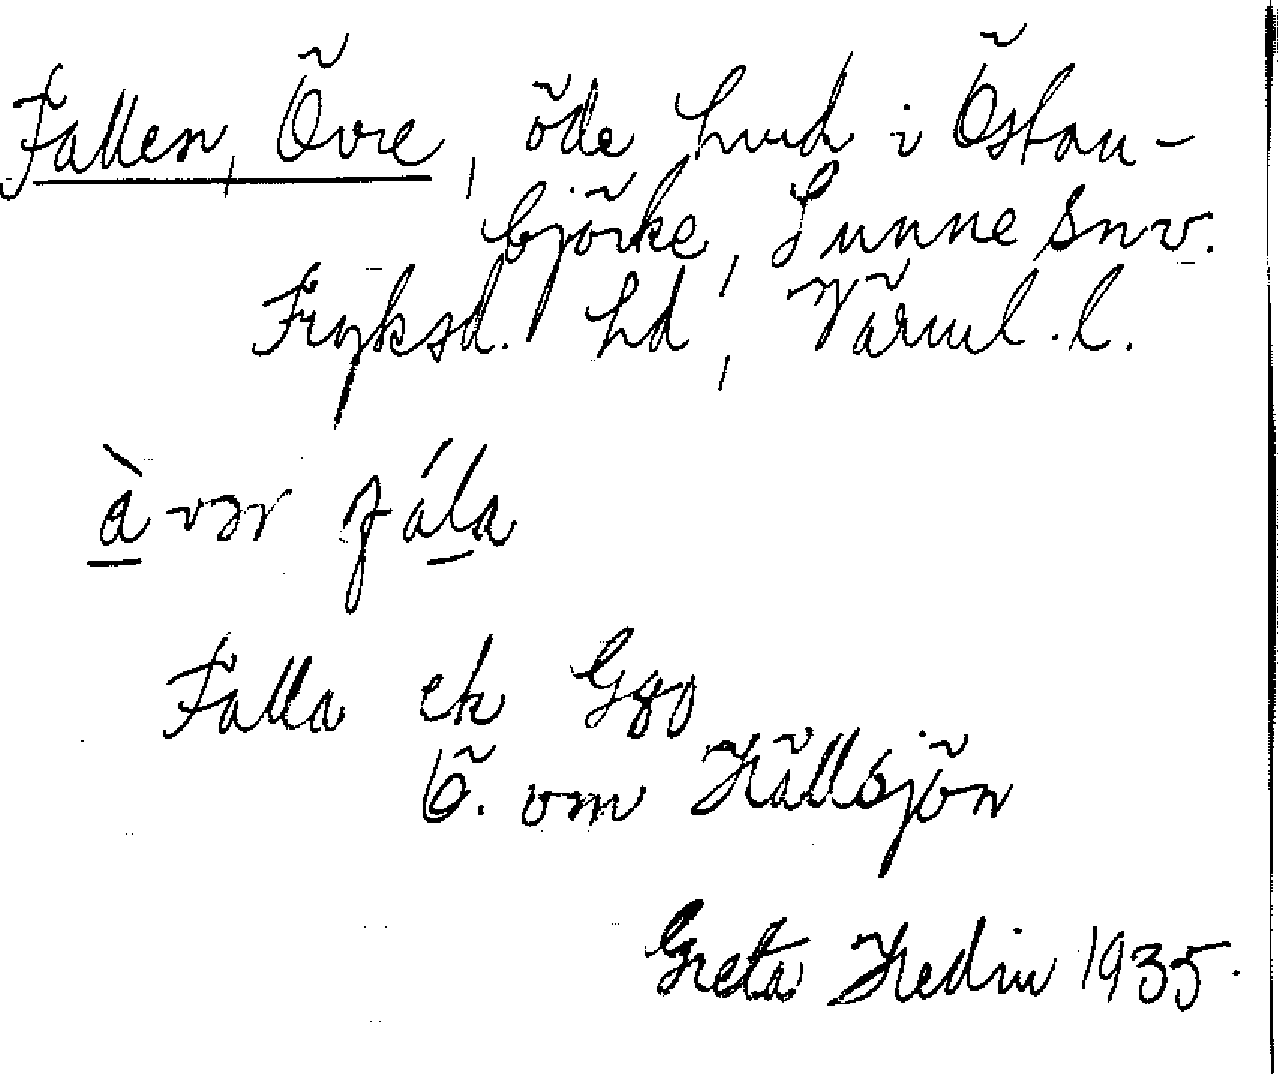 Fallen, Övre, öde hmd i Östan-
björke, Sunne snv.
Fryksd. hd, Värml. l.
à vər fála
Falla ek Ggo
Ö. om Hällsjön
Greta Hedin 1935.